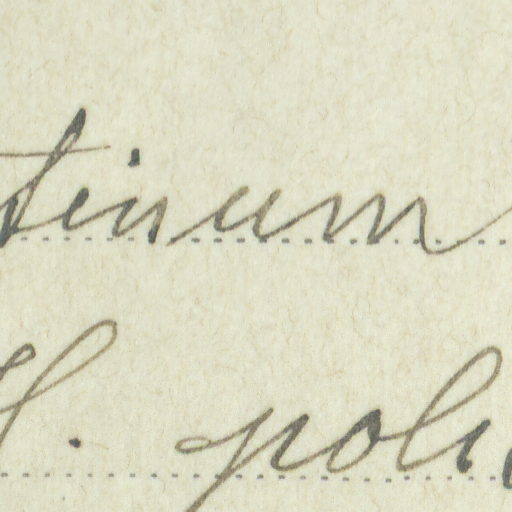 tinum
H. poli